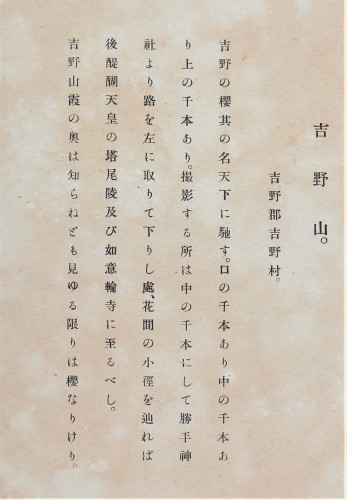 吉野山。
吉野郡吉野村。
吉野の櫻其の名天下に馳す。口の千本あり中の千本あ
り上の千本あり。撮影する所は中の千本にして勝手神
社より路を左に取りて下りし處、花間の小徑を辿れば
後醍醐天皇の塔尾陵及び如意輪寺に至るべし。
吉野山霞の奥は知らねども見ゆる限りは櫻なりけり。